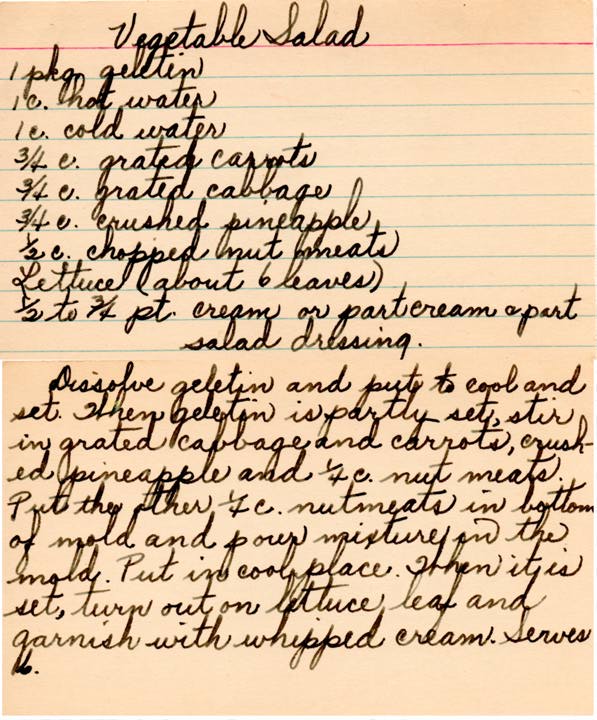 Vegetable Salad
1 pkg. geletin
1 c. hot water
1 c. cold water
3/4 c. grated carrots
3/4 c. grated cabbage
3/4 c. crushed pineapple
1/2 c. chopped nut meats
Lettuce (about 6 leaves)
1/2 to 3/4 pt. cream or part cream & part
salad dressing.
Dissolve geletin and put to cool and
set. When geletin is partly set, stir
in grated cabbage and carrots, crush-
ed pineapple and 1/4 c. nut meats.
Put the other 1/4 c. nutmeats in bottom
of mold and pour mixture in the
mold. Put in cool place. When it is
set, turn out on lettuce leaf and
garnish with whipped cream. Serves
6.